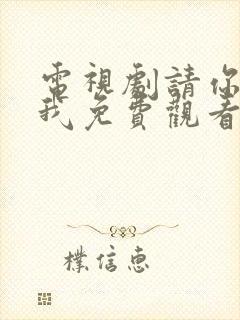 電視劇請你
我免費觀看
樸信惠